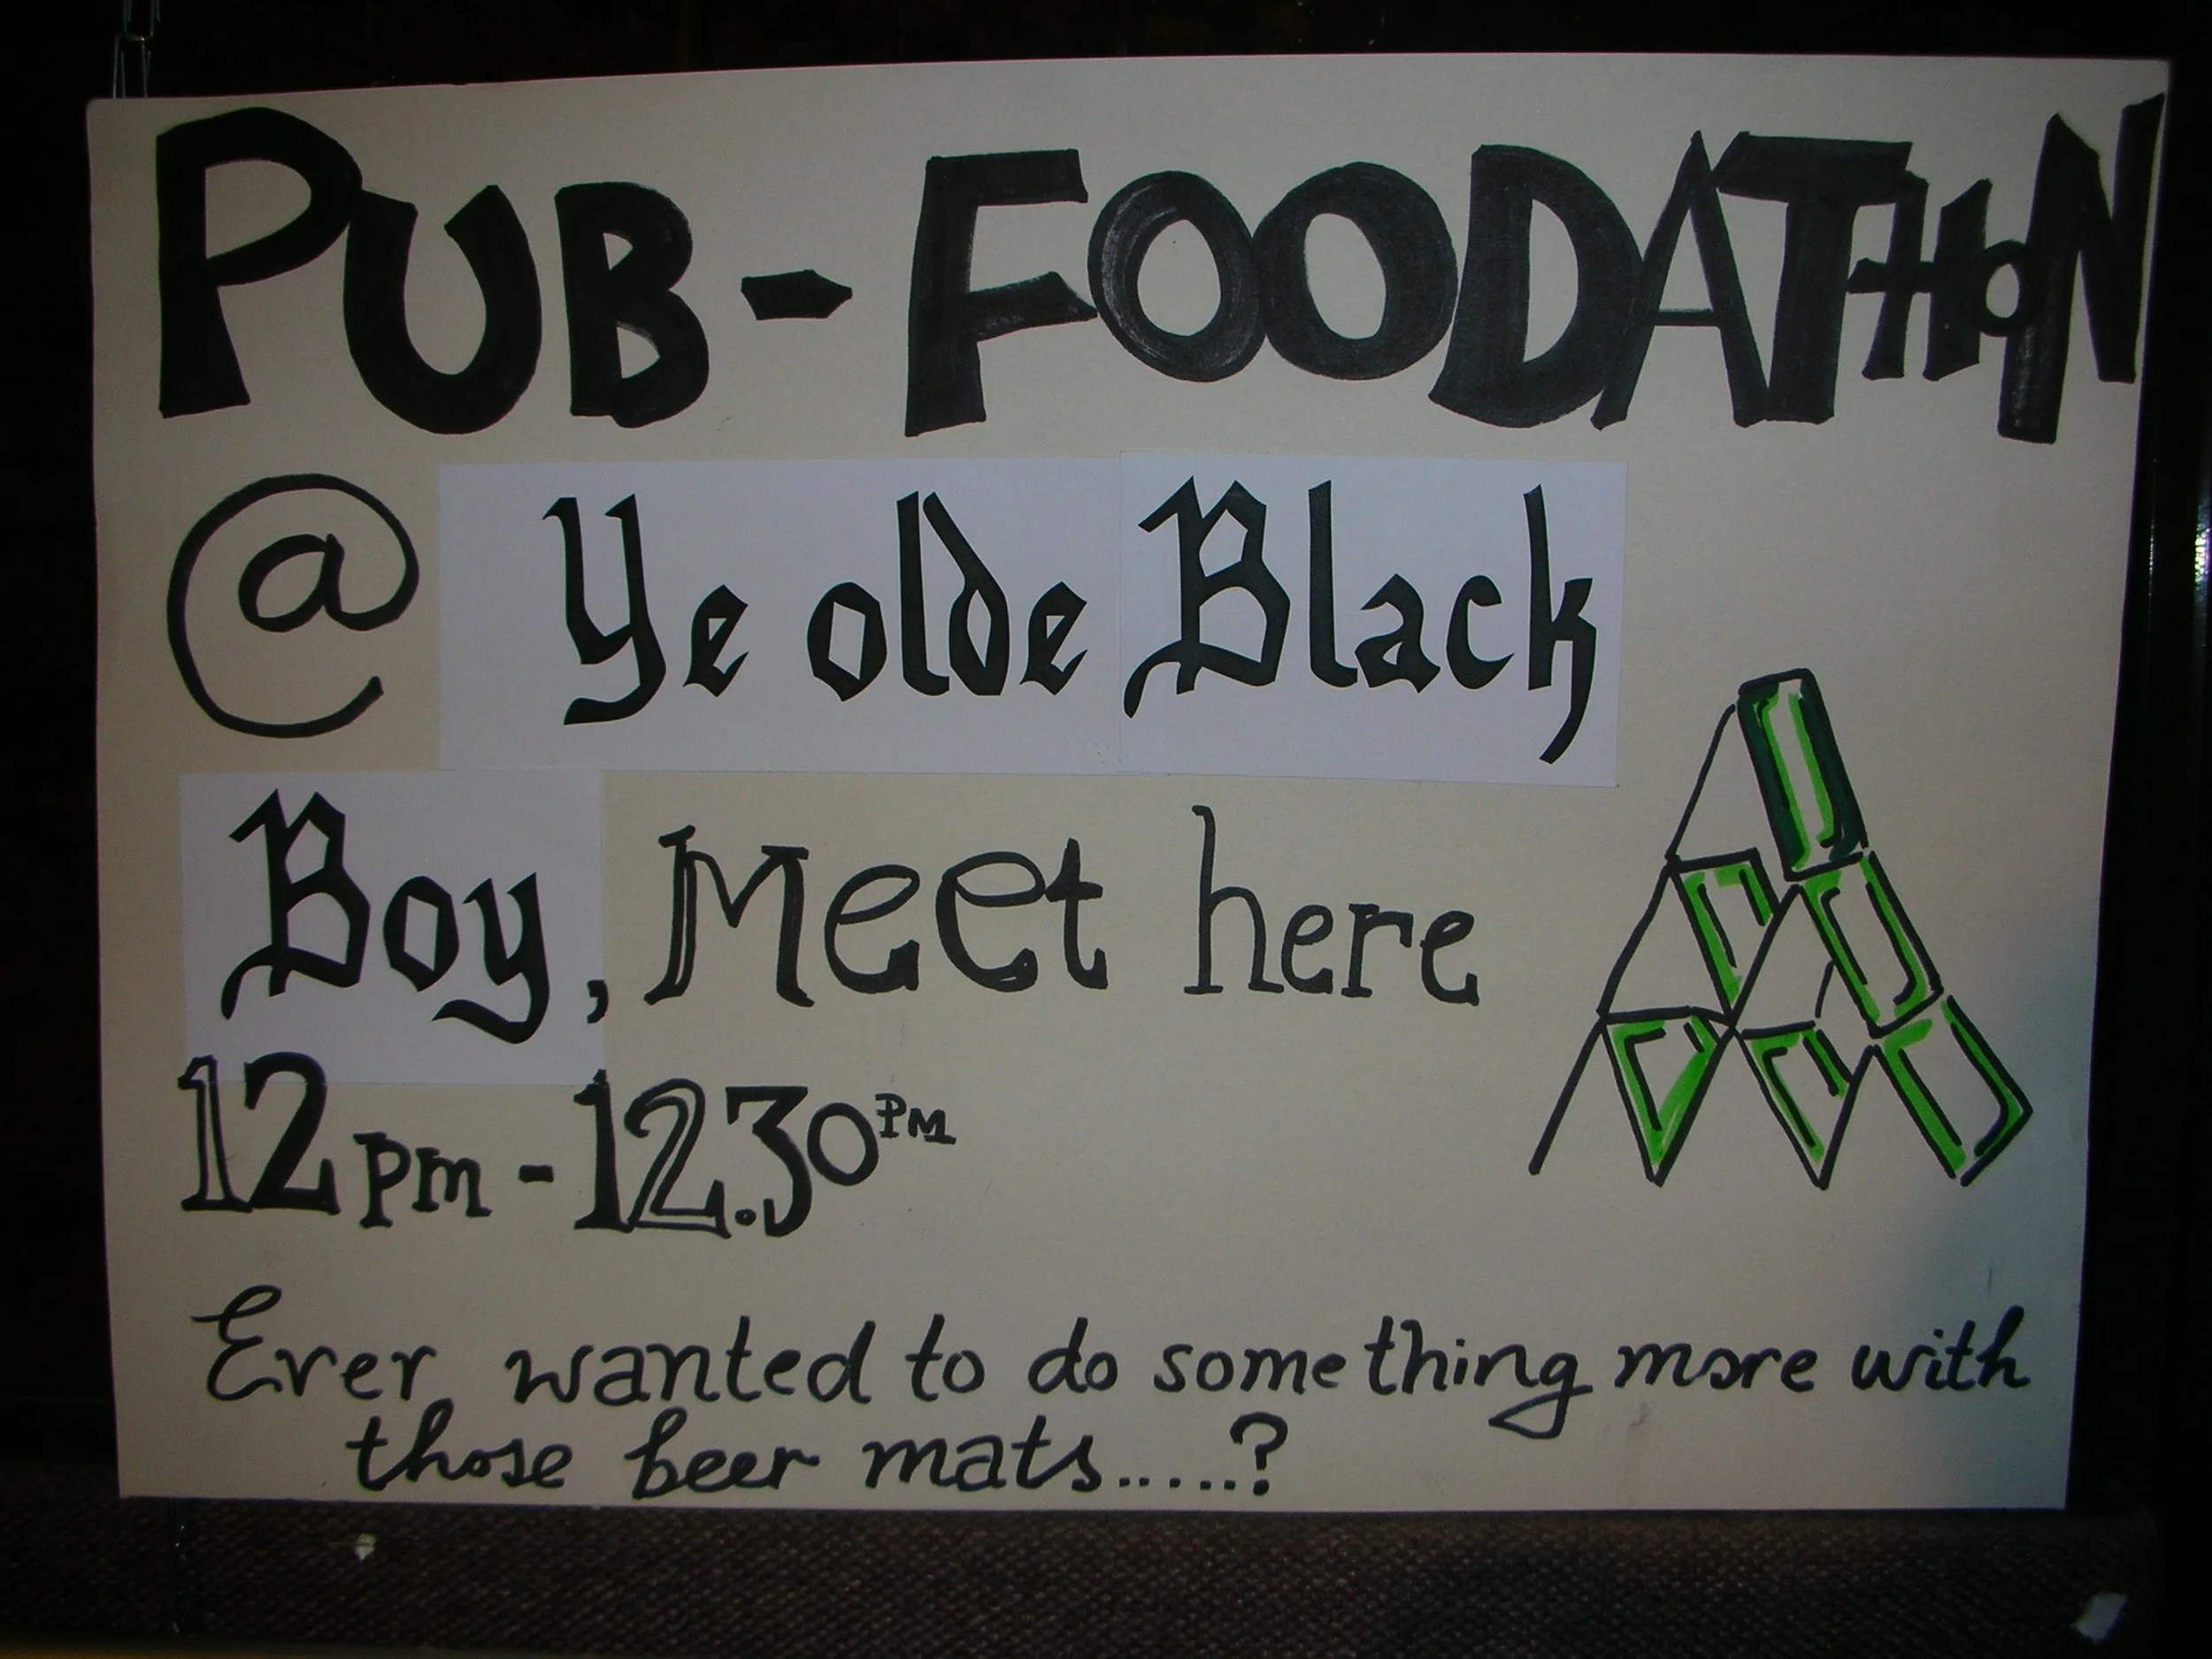 PUB - FOODATHON
@ Ye olde Black
Boy, Meet here
12pm - 12.30PM
Ever wanted to do something more with
those beer mats.....?